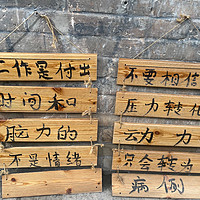 工作是付出
时间和
脑力的
不是情绪
不要相信
压力转化
动力
只会转为
病例